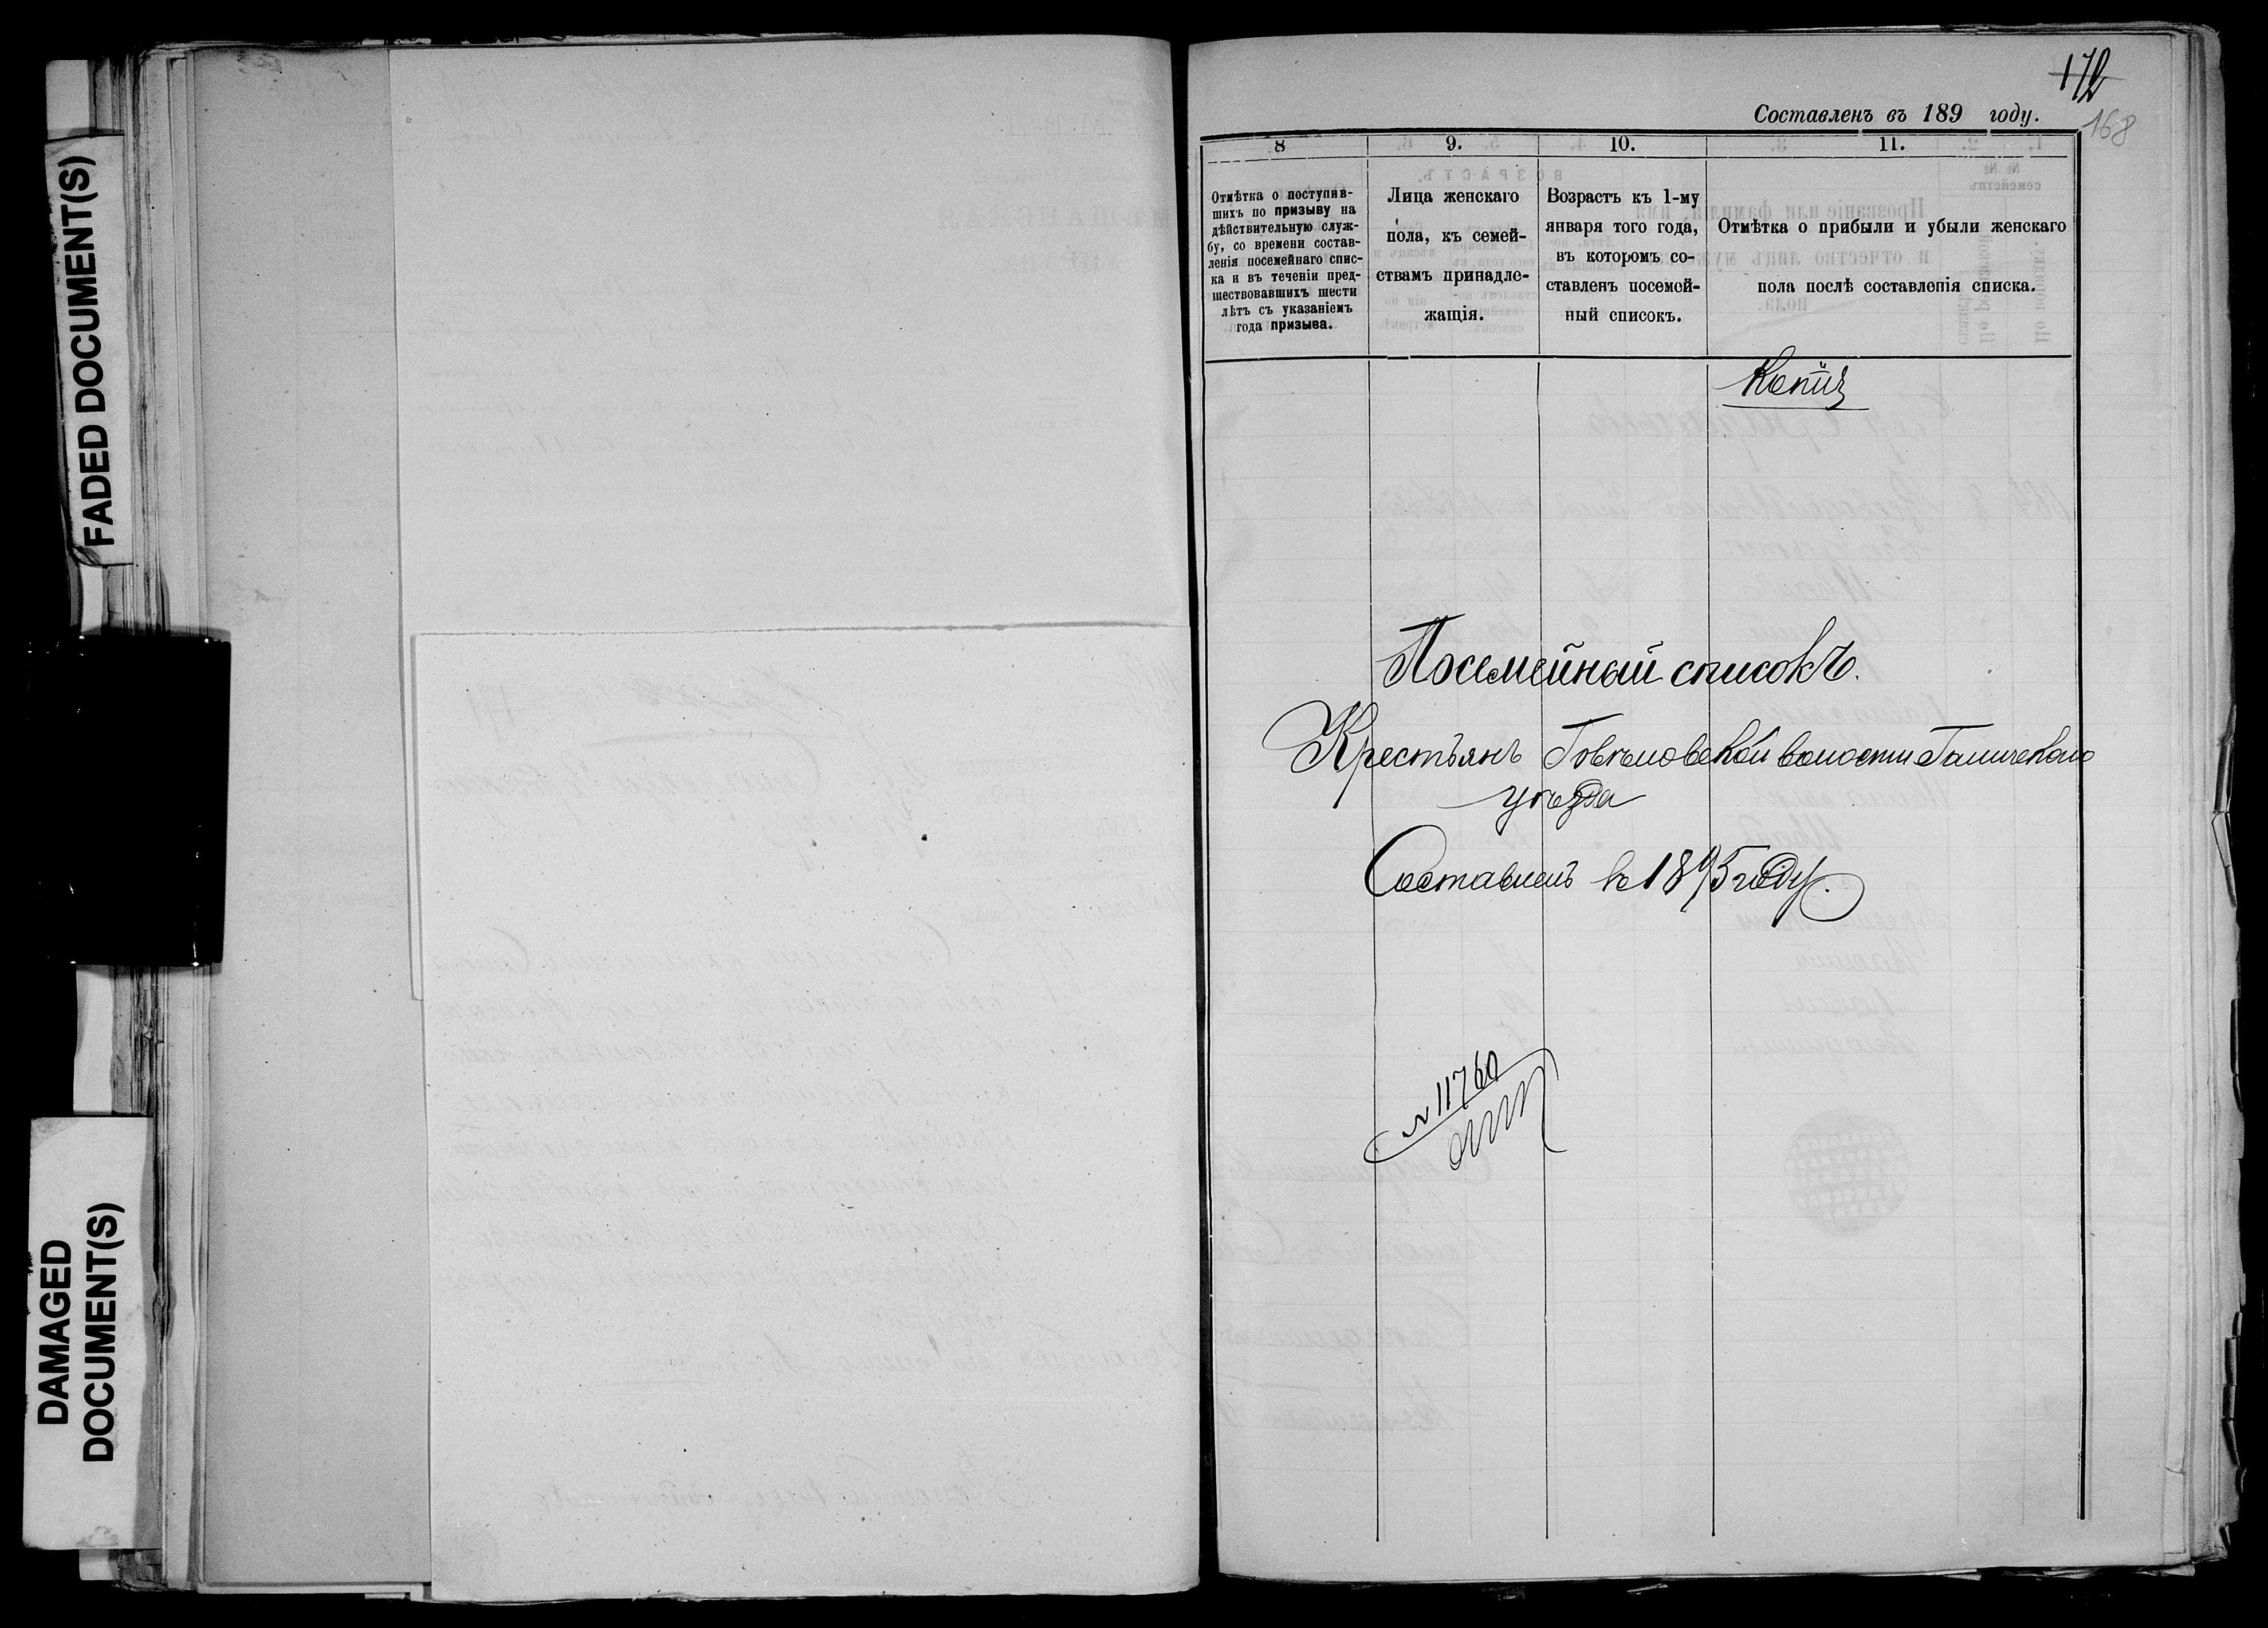 FADED DOCUMENT(S)
DAMAGED
DOCUMENT(S)
172
168
Составленъ въ 189 году.
8 9. 10. 11.
Отмѣтка о поступив-
шихъ по призыву на
дѣйствительную служ-
бу, со времени состав-
ленія посемейнаго спис-
ка и въ теченіи пред-
шествовавшихъ шести
лѣтъ съ указаніемъ
года призыва.
Лица женскаго
пола, къ семей-
ствамъ принадле-
жащія.
Возрастъ къ 1-му
января того года,
въ которомъ со-
ставленъ посемей-
ный списокъ.
Отмѣтка о прибыли и убыли женскаго
пола послѣ составленія списка.
Копія
Посемейный списокъ.
Крестьянъ волости Галичскаго
уѣзда
Составленъ въ 1895 году.
№ 11760